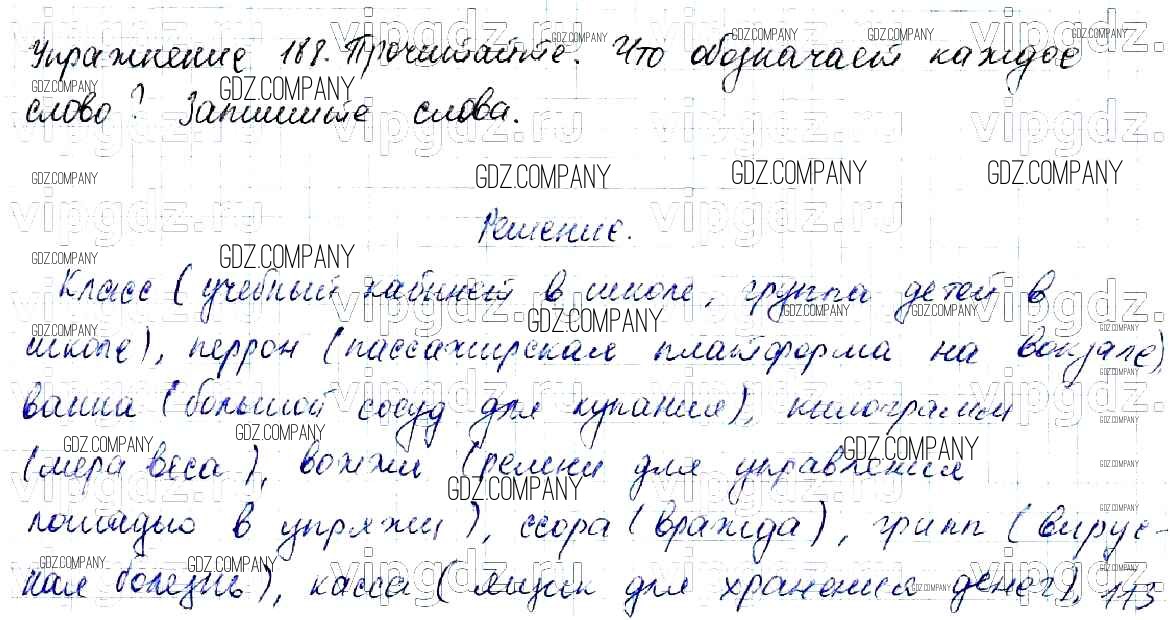 Упражнение 188. Прочитайте. Что обозначает каждое
слово? Запишите слова.
Решение.
Класс (учебный кабинет в школе, группа детей в
школе), перрон (пассажирская платформа на вокзале),
ванна (большой сосуд для купания), килограмм
(мера веса), вожжи (ремни для управления
лошадью в упряжи), ссора (вражда), грипп (вирус-
ная болезнь), касса (ящик для хранения денег), 113